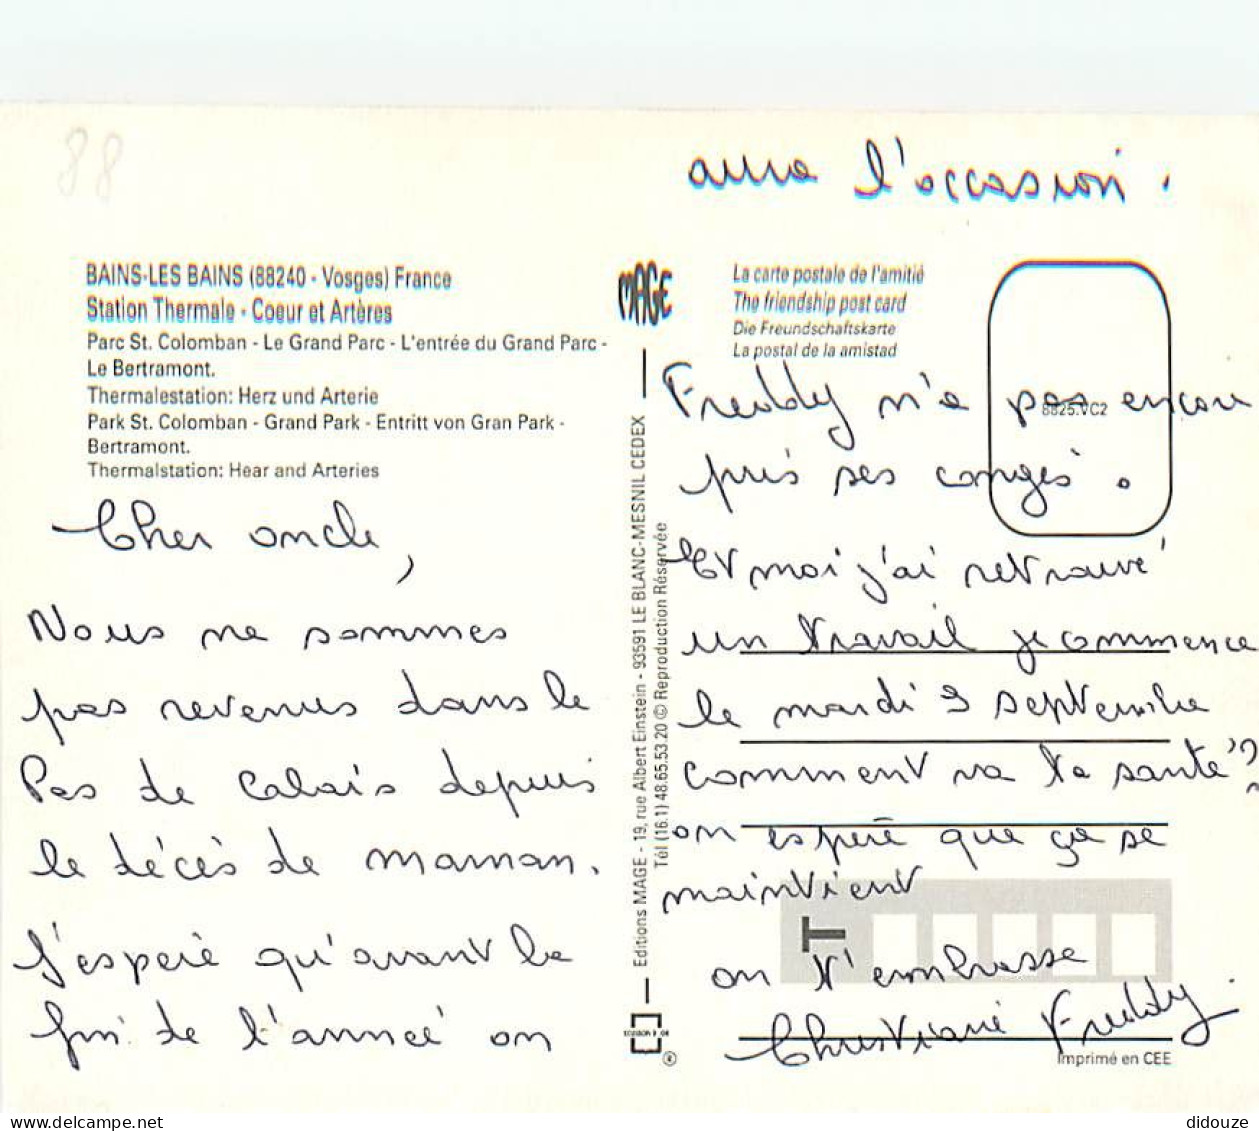 88
BAINS-LES BAINS (88240 - Vosges) France
Station Thermale - Coeur et Artères
Parc St. Colomban - Le Grand Parc - L'entrée du Grand Parc -
Le Bertramont.
Thermalestation: Herz und Arterie
Park St. Colomban - Grand Park - Entritt von Gran Park -
Bertramont.
Thermalstation: Hear and Arteries
Cher oncle,
Nous ne sommes
pas revenus dans le
Pas de Calais depuis
le décès de maman.
J'espère qu'avant la
fin de l'année on
aura l'occasion.
MAGE
Editions MAGE - 19, rue Albert Einstein - 93591 LE BLANC-MESNIL CEDEX
Tél (16.1) 48.65.53.20 © Reproduction Réservée
La carte postale de l'amitié
The friendship post card
Die Freundschaftskarte
La postal de la amistad
8825.VC2
Freddy n'a pas encore
pris ses congés.
Et moi j'ai retrouvé
un travail je commence
le mardi 3 septembre
comment va ta santé ?
on espère que ça se
maintient
T
on t'embrasse
Christiane Freddy.
Imprimé en CEE
didouze